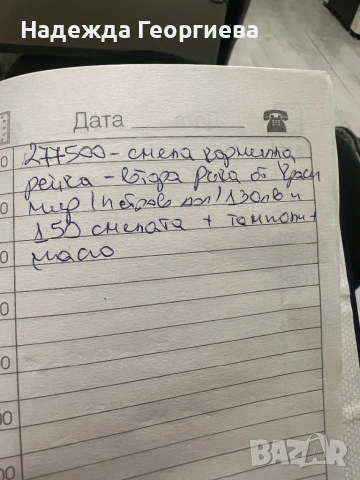 Надежда Георгиева
Дата
277500 - смяна кормилна
рейка - втора ръка от Краси
мир (Петрово дол) 130лв и
150 смяната + тампони +
масло
BAZAR